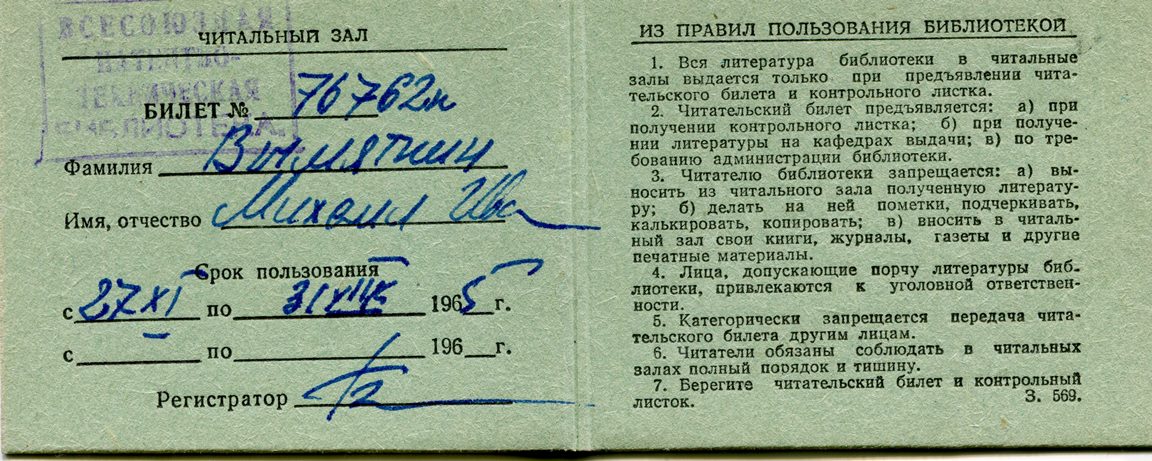 ВСЕСОЮЗНАЯ
ПАТЕНТНО-
ТЕХНИЧЕСКАЯ
БИБЛИОТЕКА
ЧИТАЛЬНЫЙ ЗАЛ
БИЛЕТ № 76762н
Фамилия
Имя, отчество Михаил Ива
Срок пользования
с 27 XI по 31 XII 1965 г.
с по 196 г.
Регистратор
ИЗ ПРАВИЛ ПОЛЬЗОВАНИЯ БИБЛИОТЕКОЙ
1. Вся литература библиотеки в читальные
залы выдается только при предъявлении чита-
тельского билета и контрольного листка.
2. Читательский билет предъявляется: а) при
получении контрольного листка; б) при получе-
нии литературы на кафедрах выдачи; в) по тре-
бованию администрации библиотеки.
3. Читателю библиотеки запрещается: а) вы-
носить из читального зала полученную литерату-
ру; б) делать на ней пометки, подчеркивать,
калькировать, копировать; в) вносить в читаль-
ный зал свои книги, журналы, газеты и другие
печатные материалы.
4. Лица, допускающие порчу литературы биб-
лиотеки, привлекаются к уголовной ответствен-
ности.
5. Категорически запрещается передача чита-
тельского билета другим лицам.
6. Читатели обязаны соблюдать в читальных
залах полный порядок и тишину.
7. Берегите читательский билет и контрольный
листок. З. 569.